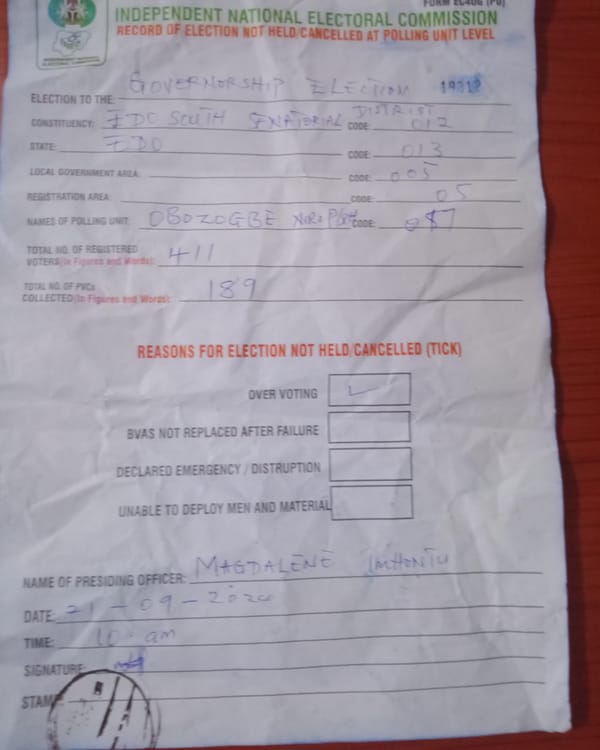 FORM EC40G (PU)
INDEPENDENT NATIONAL ELECTORAL COMMISSION
RECORD OF ELECTION NOT HELD/CANCELLED AT POLLING UNIT LEVEL
INDEPENDENT NATIONAL ELECTORAL COMMISSION
ELECTION TO THE: GOVERNORSHIP ELECTION
CONSTITUENCY: EDO SOUTH SENATORIAL DISTRICT CODE: 012
STATE: EDO CODE: 013
LOCAL GOVERNMENT AREA: CODE: 005
REGISTRATION AREA: CODE: 05
NAMES OF POLLING UNIT: OBOZOGBE CODE:
TOTAL NO. OF REGISTERED
VOTERS (In Figures and Words): 411
TOTAL NO. OF PVCs
COLLECTED (In Figures and Words): 189
REASONS FOR ELECTION NOT HELD/CANCELLED (TICK)
OVER VOTING ✓
BVAS NOT REPLACED AFTER FAILURE
DECLARED EMERGENCY / DISTRUPTION
UNABLE TO DEPLOY MEN AND MATERIAL
NAME OF PRESIDING OFFICER: MAGDALENE
DATE: 21-09-2024
TIME: 10 am
SIGNATURE:
STAMP